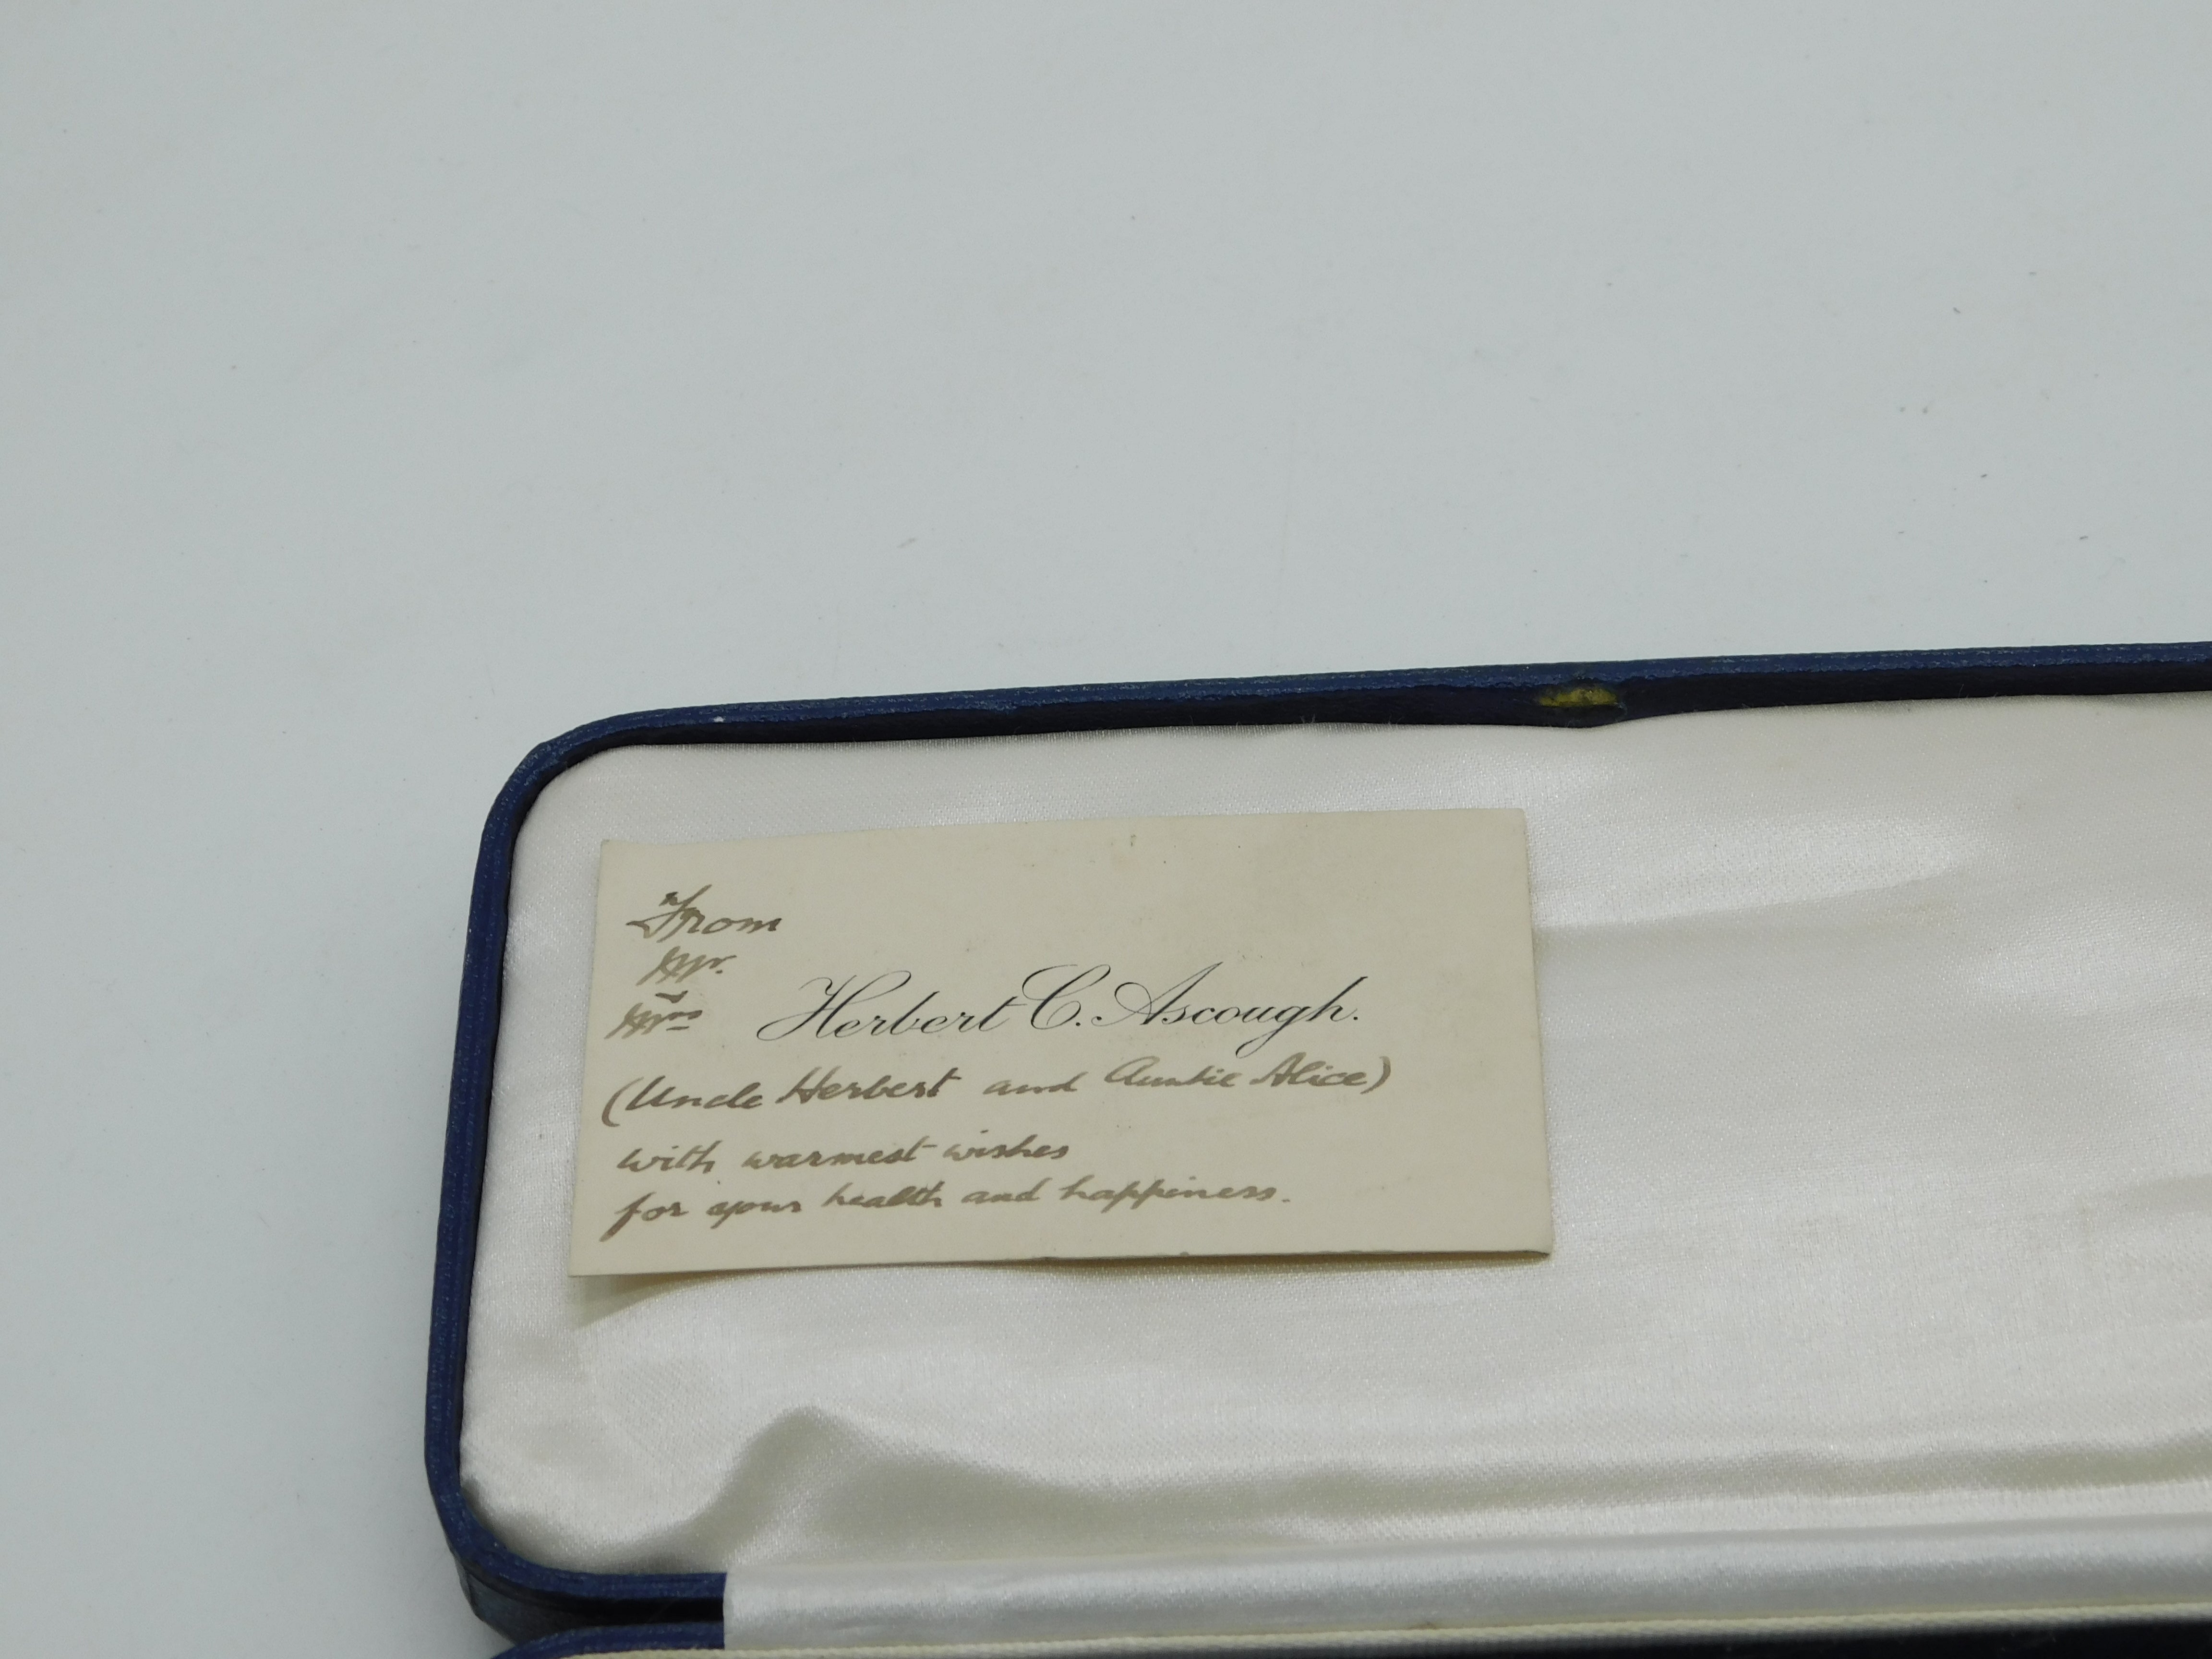 From
Mr.
Mrs Herbert C. Ascough.
(Uncle Herbert and Auntie Alice)
with warmest wishes
for your health and happiness.